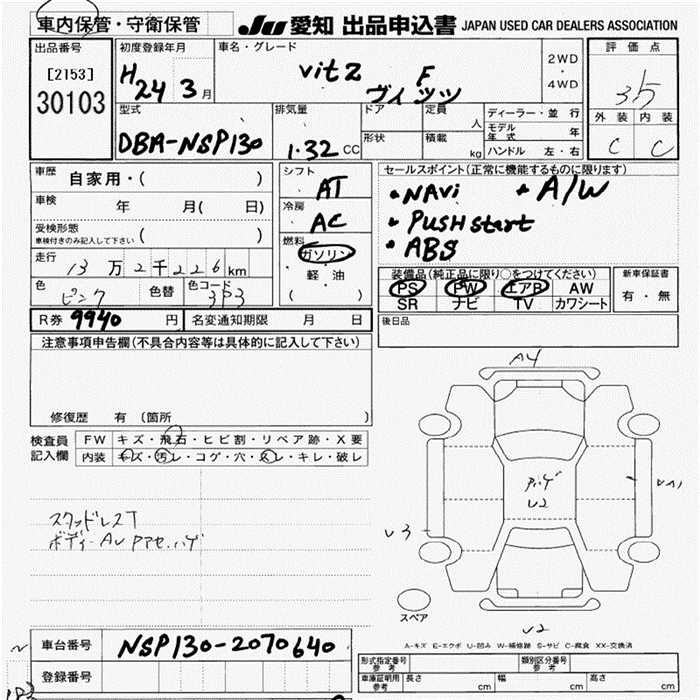 車内保管・守衛保管
JU 愛知 出品申込書 JAPAN USED CAR DEALERS ASSOCIATION
出品番号
[2153]
30103
初度登録年月
H 24 3 月
車名・グレード
vitz F
ヴィッツ
2WD
・
4WD
評価点
3.5
外装 内装
C C
型式
DBA-NSP130
排気量
1.32 CC
ドア
形状
定員 人
積載 kg
ディーラー・並行
モデル年式 年
ハンドル 左・右
車歴
自家用・( )
車検
年 月( 日)
受検形態
車検付きのみ記入して下さい ( )
走行
13万2千226km
色
ピンク
色替
色コード
3P3
シフト
AT
冷房
AC
燃料
ガソリン
軽・油
( )
セールスポイント(正常に機能するものに限ります)
・NAVi ・A/W
・PUSH start
・ABS
装備品(純正品に限り○をつけてください)
PS PW エアB AW
SR ナビ TV カワシート
新車保証書
有・無
R券 9940 円
名変通知期限 月 日
後日品
注意事項申告欄(不具合内容等は具体的に記入して下さい)
修復歴 有(箇所 )
検査員
記入欄
FW キズ・飛石・ヒビ割・リペア跡・X要
内装 キズ・汚レ・コゲ・穴・スレ・キレ・破レ
スタッドレスT
ボディーAU
A4
U2
U3
U2
スペア
A-キズ E-エクボ U-凹み W-補修跡 S-サビ C-腐食 XX-交換済
車台番号
NSP130-2070640
登録番号
型式指定番号
参考
類別区分番号
参考
車庫証明用
参考
長さ cm
幅 cm
高さ cm